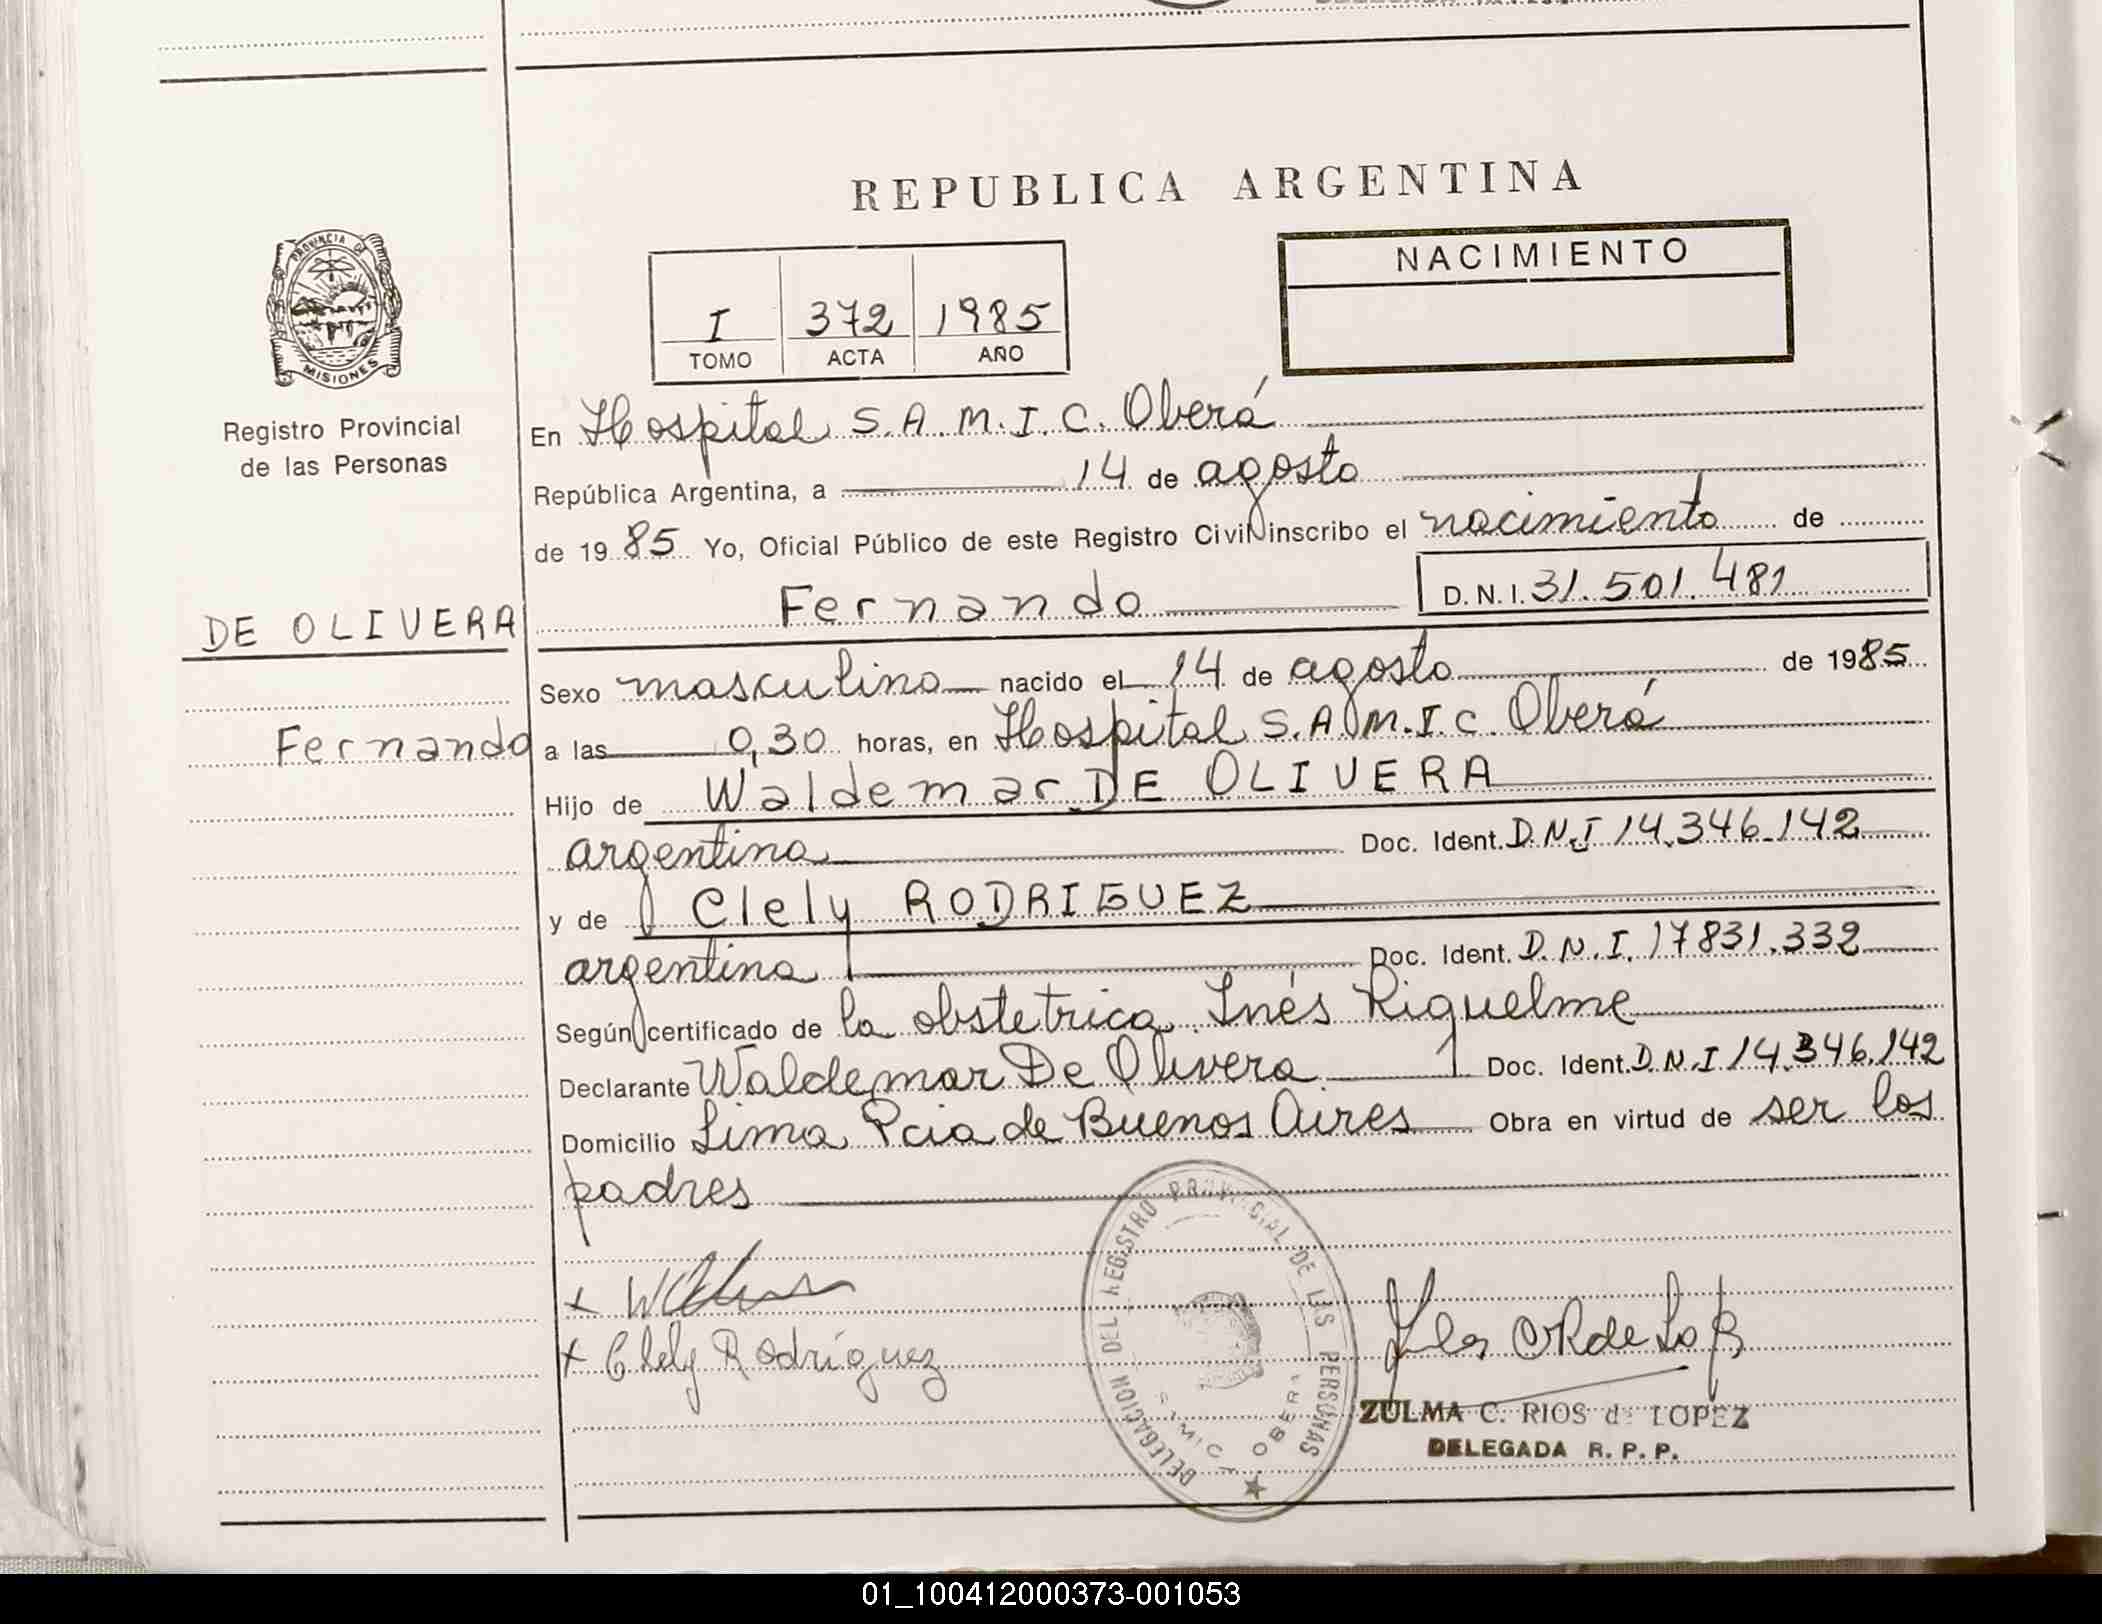 REPUBLICA ARGENTINA
PROVINCIA DE
MISIONES
Registro Provincial
de las Personas
I 372 1985
TOMO ACTA AÑO
NACIMIENTO
En Hospital S.A.M.I.C. Oberá
República Argentina, a 14 de agosto
de 1985 Yo, Oficial Público de este Registro Civil inscribo el nacimiento de
Fernando D.N.I. 31.501.481
DE OLIVERA
Sexo masculino nacido el 14 de agosto de 1985
Fernando
a las 0,30 horas, en Hospital S.A.M.I.C. Oberá
Hijo de Waldemar DE OLIVERA
argentina Doc. Ident. D.N.I 14.346.142
y de Clely RODRIGUEZ
argentina Doc. Ident. D.N.I. 17831.332
Según certificado de la obstetrica Inés Riquelme
Declarante Waldemar De Olivera Doc. Ident. D.N.I 14.346.142
Domicilio Lima Pcia de Buenos Aires Obra en virtud de ser los
padres
DELEGACION DEL REGISTRO PROVINCIAL DE LAS PERSONAS
SAMIC OBERA
x
x Clely Rodríguez
ZULMA C. RIOS de LOPEZ
DELEGADA R. P. P.
01_100412000373-001053